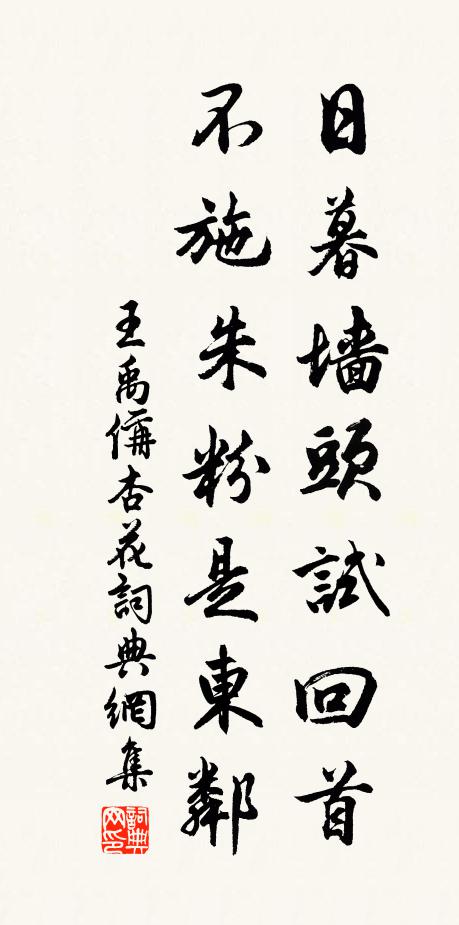 日暮墻頭試回首
不施朱粉是東鄰
王禹偁杏花詞典網集
詞典
网印